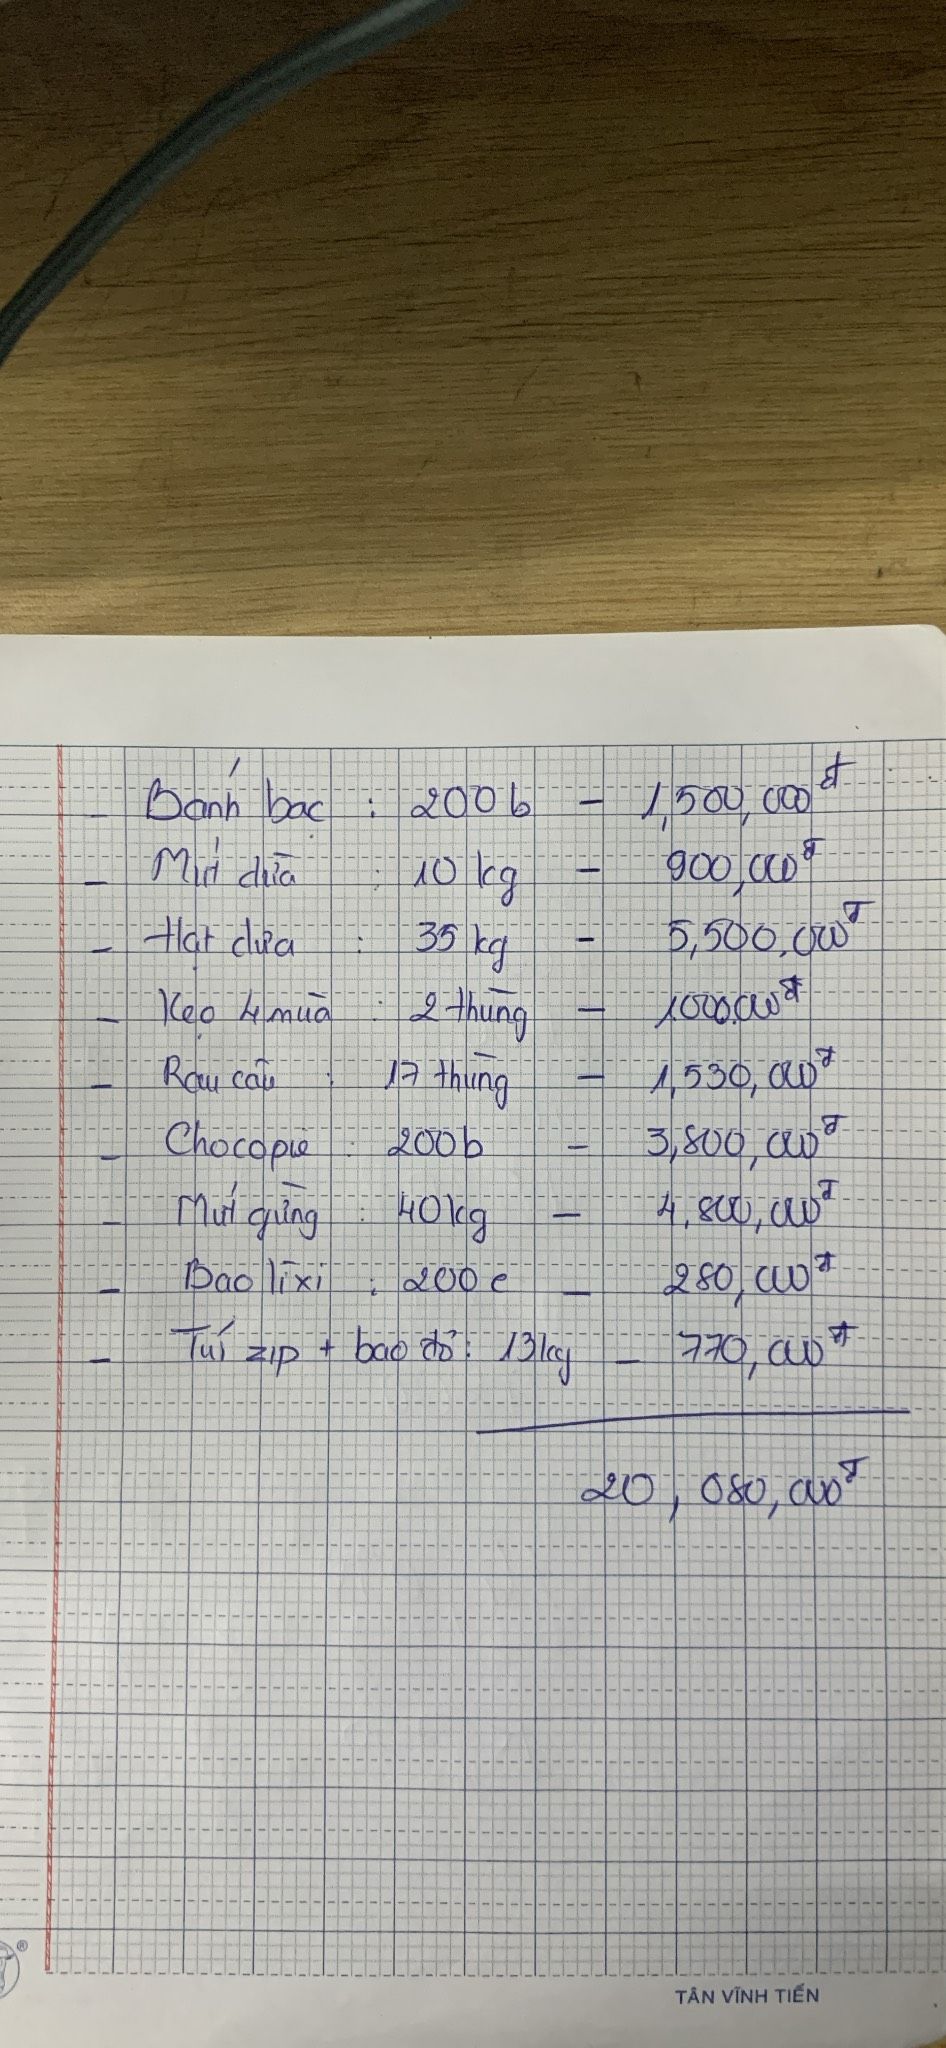 - Bánh bạc : 200b - 1,500,000đ
- Mứt dừa : 10 kg - 900,000đ
- Hạt dưa : 35 kg - 5,500,000đ
- Kẹo 4 mùa : 2 thùng - 1000.000đ
- Rau câu : 17 thùng - 1,530,000đ
- Chocopie : 200b - 3,800,000đ
- Mứt gừng : 40kg - 4,800,000đ
- Bao lì xì : 200c - 280,000đ
- Túi zip + bao đỏ : 13kg - 770,000đ
20,080,000đ
®
TÂN VĨNH TIẾN